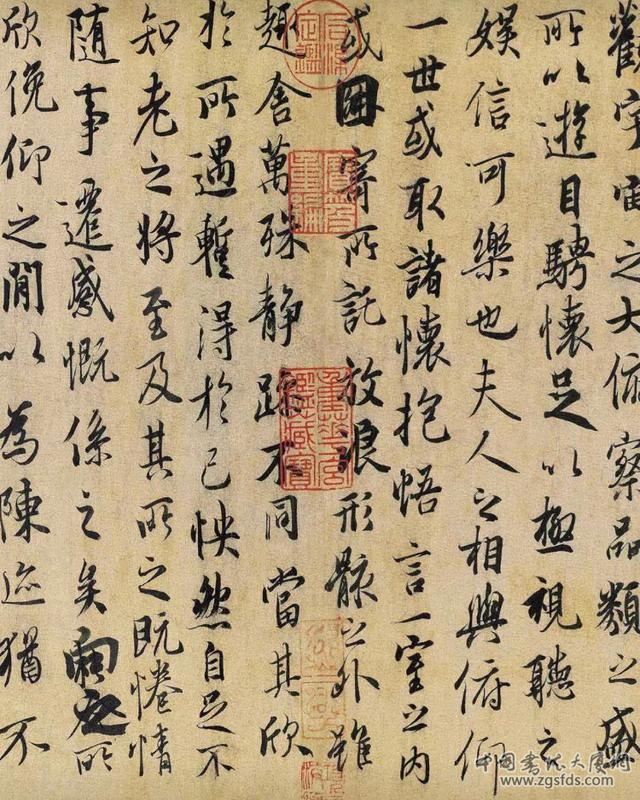 觀宇宙之大俯察品類之盛
所以遊目騁懷足以極視聽之
娛信可樂也夫人之相與俯仰
一世或取諸懷抱悟言一室之內
或因寄所託放浪形骸之外雖
趣舍萬殊靜躁不同當其欣
於所遇暫得於己怏然自足不
知老之將至及其所之既惓情
隨事遷感慨係之矣向之所
欣俛仰之閒以為陳迹猶不
石渠定鑑
寶笈重編
重華宮鑑藏寶
www.zgsfds.com